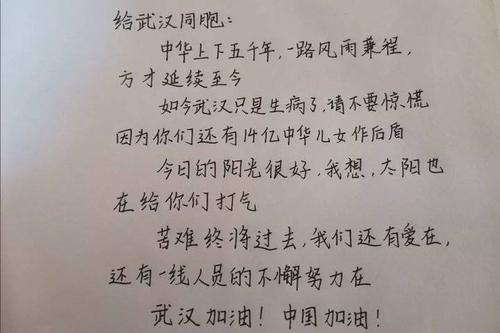 给武汉同胞：
中华上下五千年，一路风雨兼程，
方才延续至今
如今武汉只是生病了，请不要惊慌
因为你们还有14亿中华儿女作后盾
今日的阳光很好，我想，太阳也
在给你们打气
苦难终将过去，我们还有爱在，
还有一线人员的不懈努力在
武汉加油！中国加油！